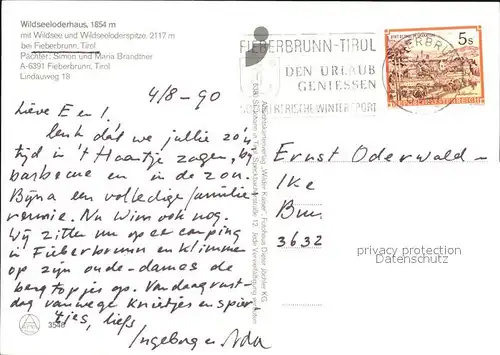 Wildseeloderhaus, 1854 m
mit Wildsee und Wildseeloderspitze, 2117 m
bei Fieberbrunn, Tirol
Pächter: Simon und Maria Brandtner
A-6391 Fieberbrunn, Tirol
Lindauweg 18
FIEBERBRUNN-TIROL
DEN URLAUB
GENIESSEN
WINTERSPORT
5s
REPUBLIK ÖSTERREICH
4/8-90
Lieve E en I.
Leuk dat we jullie zo'n
tijd in 't Haantje zagen, bij
barbecue en in de zon.
Bijna een volledige familie
reunie. Nu Wim ook nog.
Wij zitten nu op de camping
in Fieberbrunn en klimmen
op zijn oude-dames de
bergtopjes op. Vandaag rust-
dag vanwege knietjes en spier
tjes, liefs
Ingeborg en Ada
Ernst Oderwald-
Ike
3632
privacy protection
Datenschutz
3548